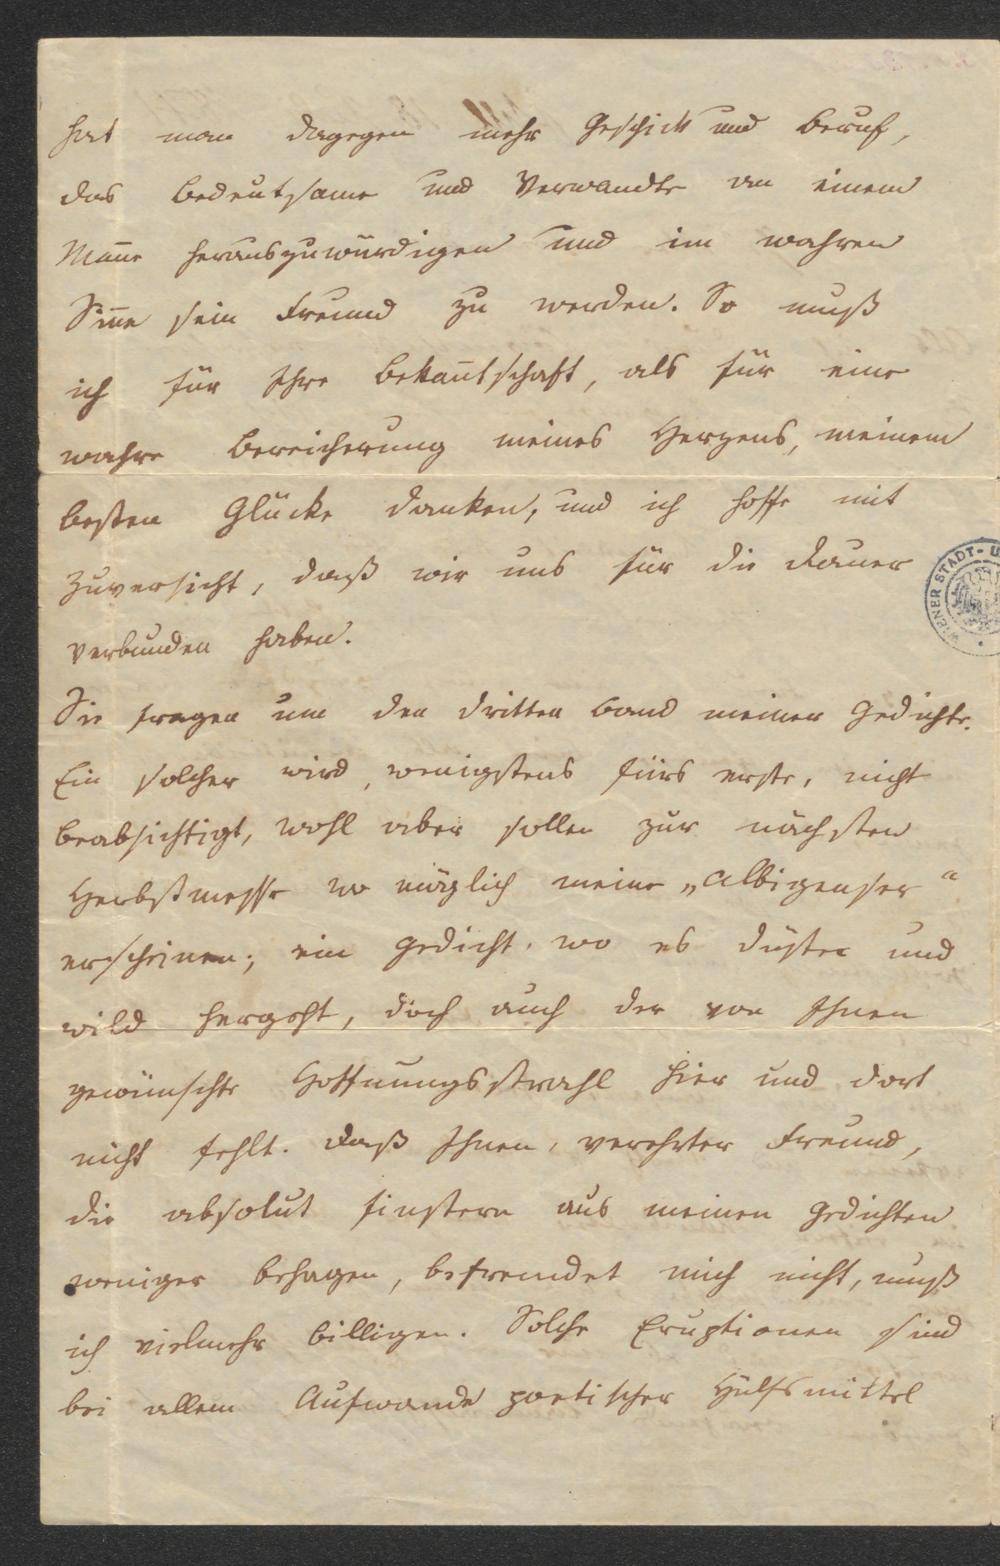 hat man dagegen mehr Geschick und Beruf,
das Bedeutsame und Verwandte an einem
Mañe herauszuwürdigen und im wahren
Siñe sein Freund zu werden. So muß
ich für Ihre Bekañtschaft, als für eine
wahre Bereicherung meines Herzens, meinem
besten Glücke danken, und ich hoffe mit
Zuversicht, daß wir uns für die Dauer
verbunden haben.
Sie fragen um den dritten Band meiner Gedichte.
Ein solcher wird, wenigstens fürs erste, nicht
beabsichtigt, wohl aber sollen zur nächsten
Herbstmesse wo möglich meine „Albigenser“
erscheinen; ein Gedicht, wo es düster und
wild hergeht, doch auch der von Ihnen
gewünschte Hoffnungsstrahl hier und dort
nicht fehlt. Daß Ihnen, verehrter Freund,
die absolut finstern aus meinen Gedichten
weniger behagen, befremdet mich nicht, muß
ich vielmehr billigen. Solche Eruptionen sind
bei allem Aufwande poetischer Hülfsmittel
WIENER STADT-U